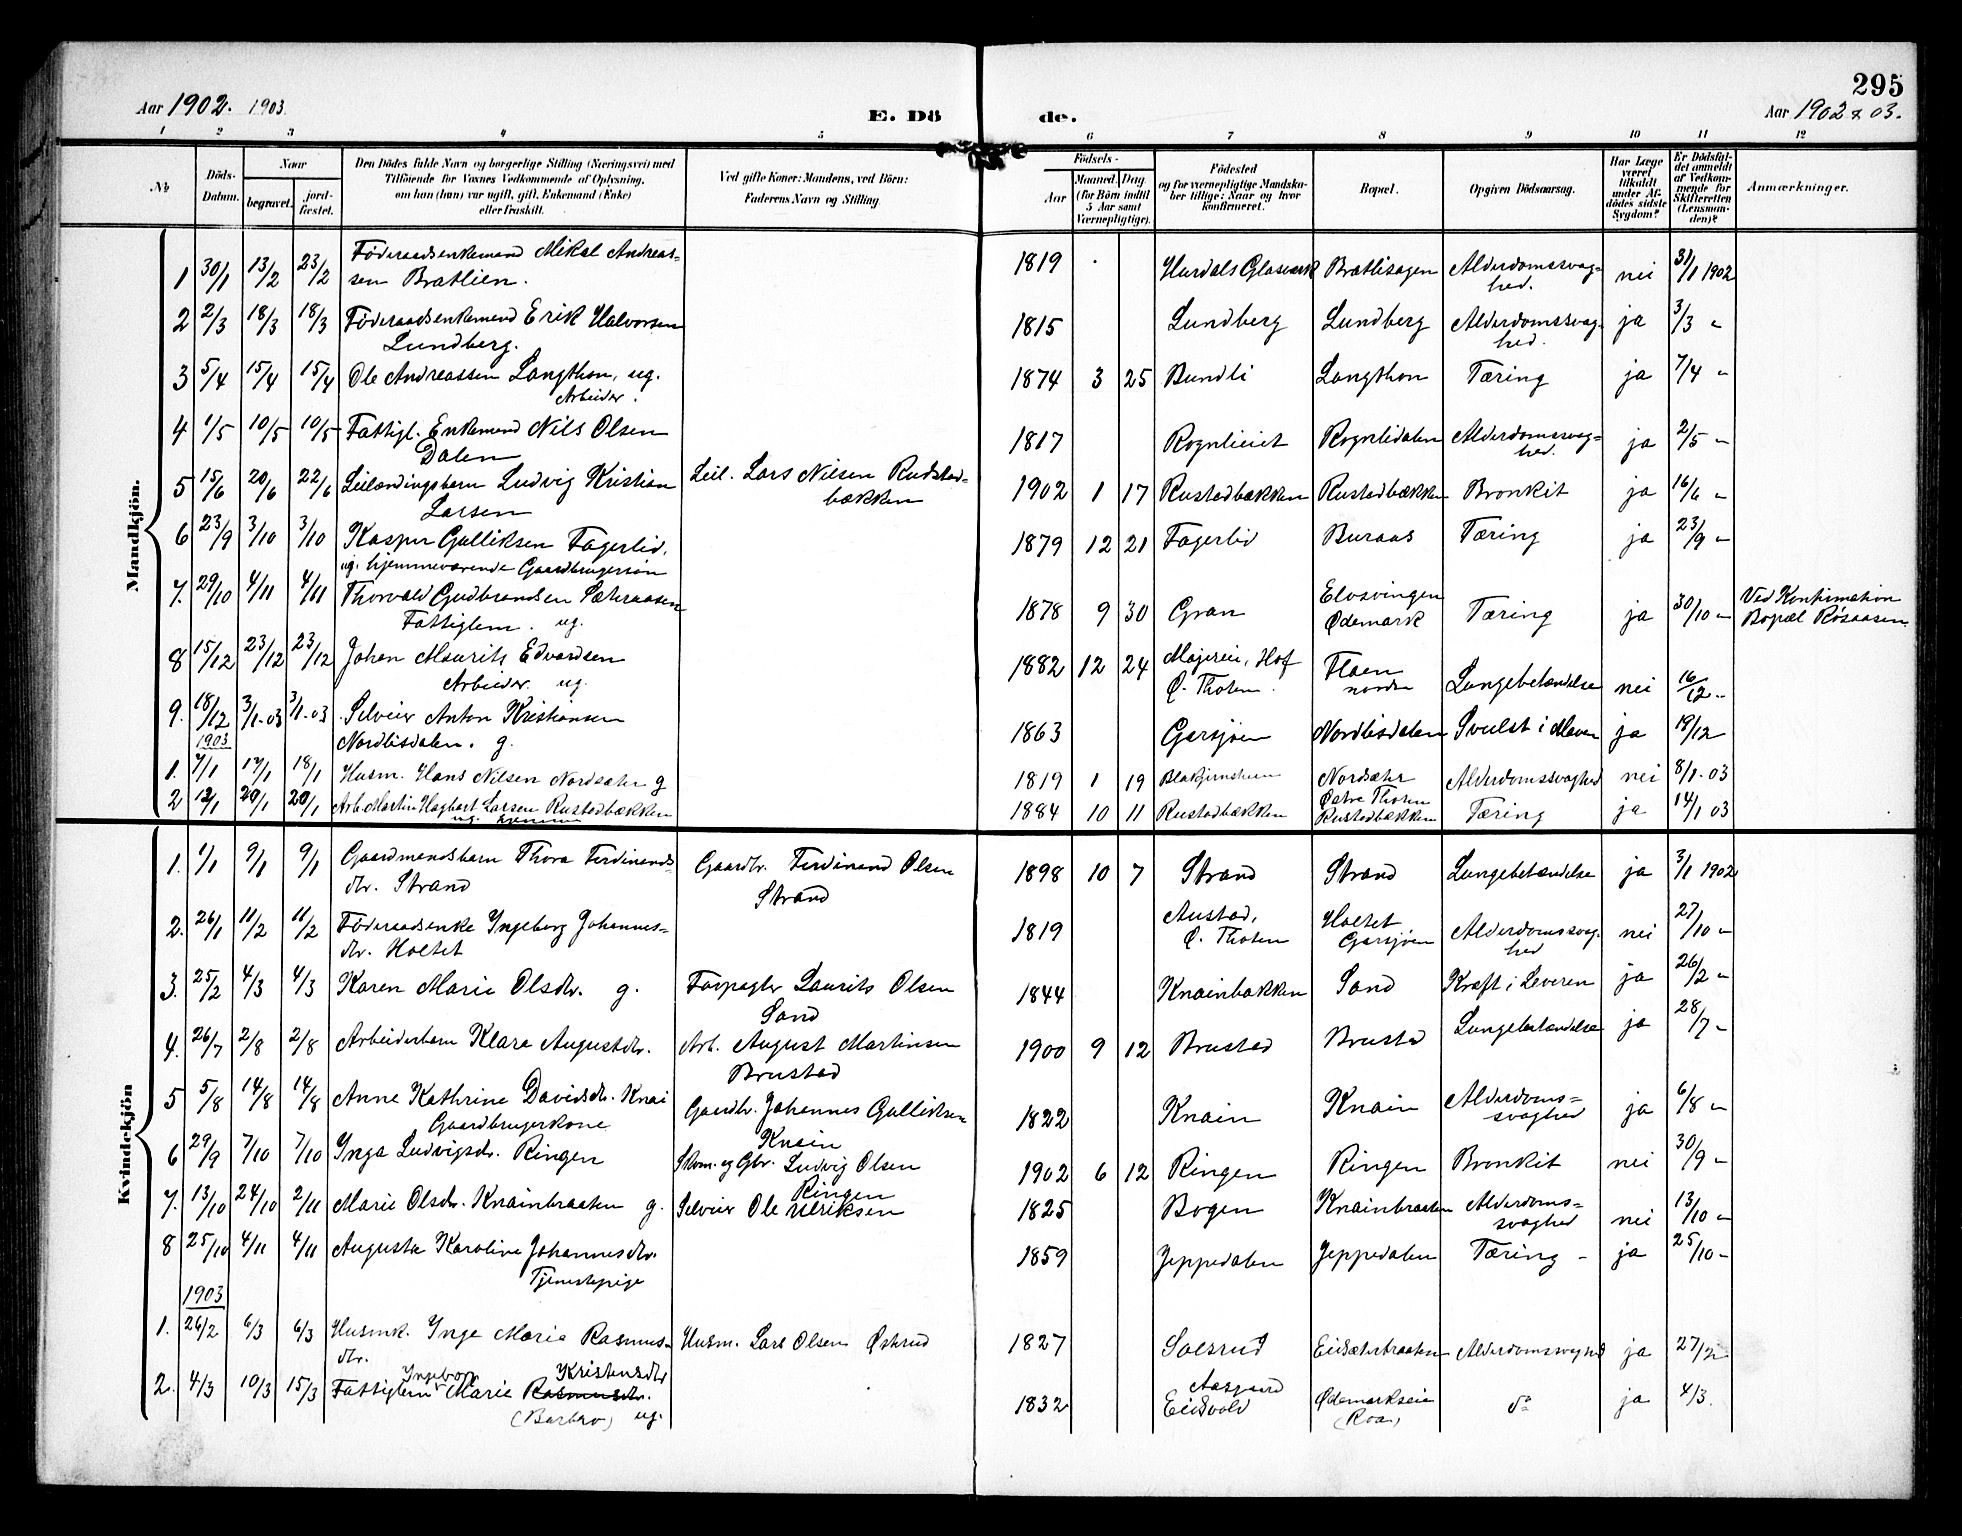 295
Aar 1902. 1903.
E. Dö
de.
Aar 1902 & 03.
1 2 3 4 5 6 7 8 9 10 11 12
No
Döds-
Datum.
Naar
begravet.
jord-
fæstet.
Den Dödes fulde Navn og borgerlige Stilling (Næringsvei) med
Tilföiende for Voxnes Vedkommende af Oplysning,
om han (hun) var ugift, gift, Enkemand (Enke)
eller fraskilt.
Ved gifte Koner: Mandens, ved Börn:
Faderens Navn og Stilling.
Födsels-
Aar
Maaned. Dag.
(for Börn indtil
5 Aar samt
Værnepligtige).
Födested
og for værnepligtige Mandska-
ber tillige: Naar og hvor
konfirmeret.
Bopæl.
Opgiven Dödsaarsag.
Har Læge
været
tilkaldt
under Af-
dödes sidste
Sygdom?
Er Dödsfal-
det anmeldt
af Vedkom-
mende for
Skifteretten
(Lensman-
den)?
Anmærkninger.
Mandkjön.
1 30/1 13/2 23/2 Föderaadsenkemand Mikal Andreas-
sen Bratlien.
1819 Hurdals Glasværk Brætlihagen Alderdomssvag-
hed. nei 31/1 1902
2 2/3 18/3 18/3 Föderaadsenkemand Erik Halvorsen
Lundberg.
1815 Lundberg Lundberg Alderdomssvag-
hed. ja 3/3 "
3 5/4 15/4 15/4 Ole Andreassen Langthon, ug.
Arbeider.
1874 3 25 Bundli Langthon Tæring ja 7/4 "
4 1/5 10/5 10/5 Fattigl. Enkemand Nils Olsen
Dalen
1817 Rognlieiet Rognlidalen Alderdomssvag-
hed. ja 2/5 "
5 15/6 20/6 22/6 Leilændingsbarn Ludvig Kristian
Larsen
Leil. Lars Nilsen Rudstad-
bækken
1902 1 17 Rustadbækken Rustadbækken Bronkit ja 16/6 "
6 23/9 3/10 3/10 Kasper Gulliksen Fagerlid,
ug. hjemmeværende Gaardbrugersøn
1879 12 21 Fagerlid Buraas Tæring ja 23/9 "
7. 29/10 4/11 4/11 Thorvald Gudbrandsen Sætraasen
Fattiglem. ug.
1878 9 30 Gran Elvsvingen
Ødemark Tæring ja 30/10 " Ved Konfirmation
Bopæl Røsaasen.
8 15/12 23/12 23/12 Johan Maurits Edvardsen
Arbeider. ug.
1882 12 24 Majerei, Hof
Ø. Thoten. Flaen
nordre Lungebetændelse nei 16/12 "
9. 18/12 3/1-03 3/1-03 Selveier Anton Kristiansen
Nordlisdalen. g.
1863 Garsjøen Nordlisdalen Svulst i Maven ja 19/12
1903
1. 7/1 17/1 18/1 Husm. Hans Nilsen Nordsæter g
1819 1 19 Nordsæter Alderdomssvaghed nei 8/1-03
2 12/1 20/1 20/1 Arb. Martin Hagbart Larsen Rustadbækken
ug. hjemme
1884 10 11 Rustadbækken Østre Thoten
Rustadbækken Tæring ja 14/1 03
Kvindekjön
1. 1/1 9/1 9/1 Gaardmandsbarn Thora Ferdinands-
dtr. Strand
Gaardbr. Ferdinand Olsen
Strand
1898 10 7 Strand Strand Lungebetændelse ja 3/1 1902
2. 26/1 11/2 11/2 Föderaadsenke Ingeborg Johannes-
dtr. Holtet
1819 Austad,
Ø. Thoten Holtet
Garsjøen Alderdomssvag-
hed nei 27/10 "
3. 25/2 4/3 4/3 Karen Marie Olsdtr. g.
Forpagter Laurits Olsen
Sand
1844 Knainbakken Sand Kræft i Leveren ja 26/2 "
4. 26/7 2/8 2/8 Arbeiderbarn Klara Augustdtr.
Arb. August Martinsen
Brustad
1900 9 12 Brustad Brustad Lungebetændelse ja 28/7 "
5 5/8 14/8 14/8 Anne Kathrine Davidsdtr. Knai
Gaardbrugerkone
Gaardbr. Johannes Gulliksen
Knain
1822 Knain Knain Alderdoms-
svaghed ja 6/8 "
6 29/9 7/10 7/10 Inga Ludvigsdtr. Ringen
Skom. og Gbr. Ludvig Olsen
Ringen
1902 6 12 Ringen Ringen Bronkit nei 30/9 "
7. 13/10 24/10 2/11 Marie Olsdtr. Knainbraaten g.
Selveier Ole Ulriksen
1825 Bogen Knainbraaten Alderdoms-
svaghed nei 13/10 "
8 25/10 4/11 4/11 Augusta Karoline Johannesdtr.
Tjenestepige
1859 Jeppedalen Jeppedalen Tæring - ja 25/10 -
1903
1. 26/2 6/3 6/3 Husmk. Inge Marie Rasmus-
dtr.
Husm. Lars Olsen Østrud
1827 Solsrud Eidsæterbraaten Alderdomssvaghed ja 27/2
2. 4/3 10/3 15/3 Fattiglem Ingeborg Marie Rasmusdtr. Kristensdtr
(Barbro) ug.
1832 Aasgaard
Eidsvold Ødemarkseie
(Roa) do ja 4/3.